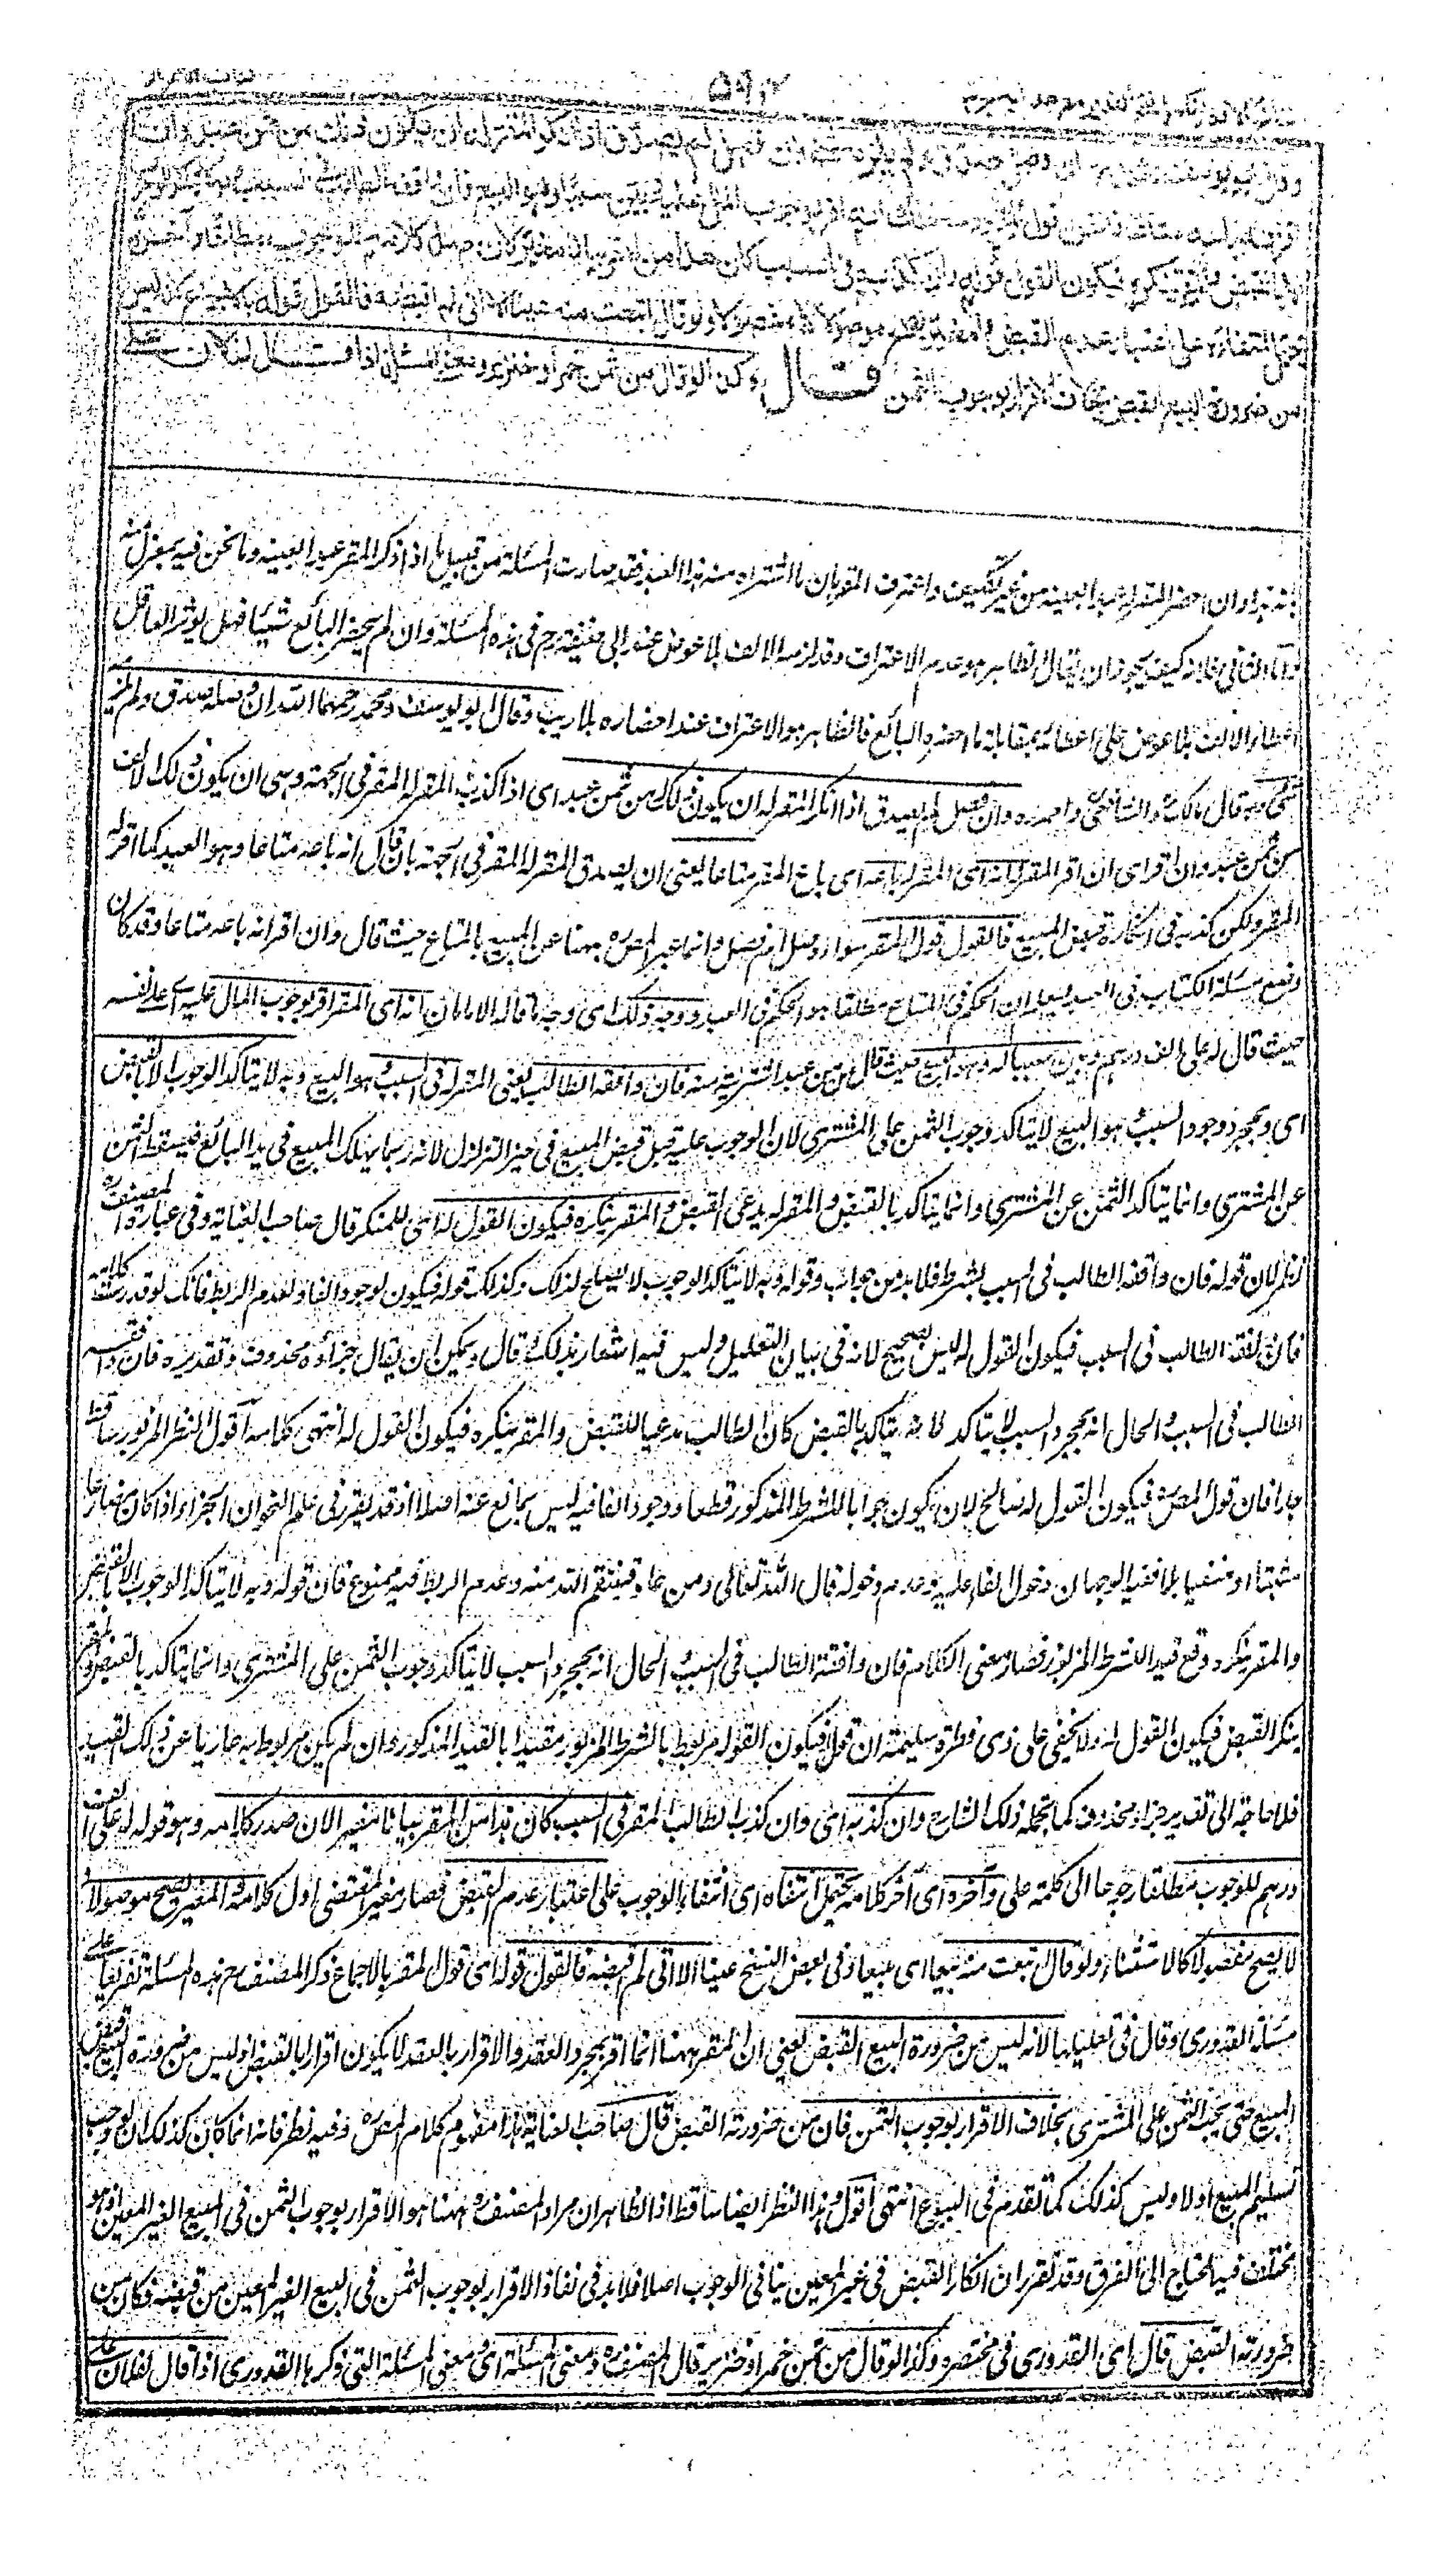 ۵۹۲
وقال ابو يوسف ومحمد ان وصل صدق ولم يلزمه شئ وان فصل لم يصدق اذا انكر المقر له ان يكون ذلك من ثمن عبد وان
اقر انه باعه متاعا فالقول قول المقر ووجه ذلك انه اقر بوجوب المال عليه وبين سببا وهو البيع فان وافقه الطالب في السبب وبه لا يتأكد الوجوب
الا بالقبض والمقر ينكره فيكون القول قوله وان كذبه في السبب كان هذا من المقر بيانا مغيرا لان صدر كلامه للوجوب مطلقا وآخره
يحتمل انتفاءه على اعتبار عدم القبض والمغير يصح موصولا لا مفصولا ولو قال ابتعت منه عينا الا اني لم اقبضه فالقول قوله بالاجماع لانه ليس
من ضرورة البيع القبض بخلاف الاقرار بوجوب الثمن قال وكذا لو قال من ثمن خمر او خنزير ومعنى المسألة اذا قال لفلان علي
وان احضر المقر له عبدا بعينه من غير تعيين واعترف المقر بان ما اشتراه منه هذا العبد فقد صارت المسئلة من قبيل ما اذا ذكر المقر عبدا بعينه وما نحن فيه بمعزل منه
واما الثاني فلانه كيف يجوز ان يقال الظاهر هو عدم الاعتراف وقد لزمه الالف بلا عوض عند ابي حنيفة رح في هذه المسئلة وان لم يحضر البائع شيئا فهل يؤثر العاقل
اعطاء الالف بلا عوض على اعطائه بمقابلة ما احضره البائع فالظاهر هو الاعتراف عند احضاره بلا ريب وقال ابو يوسف ومحمد رحمهما الله ان وصل صدق ولم يلزمه
شئ وبه قال مالك والشافعي واحمد وان فصل لم يصدق اذا انكر المقر له ان يكون ذلك من ثمن عبد اى اذا كذب المقر له المقر في الجهة وهى ان يكون ذلك الالف
من ثمن عبد وان اقر اى ان اقر المقر له انه اى المقر له باعه اى باع المقر متاعا يعنى ان يصدق المقر له المقر في الجهة بان قال انه باعه متاعا وهو العبد كما اقر به
المقر ولكن كذبه في انكاره قبض المبيع فالقول قول المقر سواء وصل ام فصل وانما عبر المص ره ههنا عن المبيع بالمتاع حيث قال وان اقر انه باعه متاعا وقد كان
وضع مسئلة الكتاب في العبد ليعلم ان الحكم في المتاع مطلقا هو الحكم في العبد ووجه ذلك اى وجه ما قاله الامامان انه اى المقر اقر بوجوب المال عليه اى على نفسه
حيث قال له علي الف درهم وبين سببا له وهو البيع حيث قال من ثمن عبد اشتريته منه فان وافقه الطالب يعنى المقر له في السبب وهو البيع وبه لا يتأكد الوجوب الا بالقبض
اى وبمجرد وجود السبب وهو البيع لا يتأكد وجوب الثمن على المشترى لان الوجوب عليه قبل قبض المبيع في حيز التزلزل لانه ربما يهلك المبيع في يد البائع فيسقط الثمن
عن المشترى وانما يتأكد الثمن عن المشترى وانما يتأكد بالقبض والمقر له يدعى القبض والمقر ينكره فيكون القول له اى للمنكر قال صاحب العناية وفى عبارة المصنف ره
نظر لان قوله فان وافقه الطالب في السبب شرط فلا بد من جواب وقوله وبه لا يتأكد الوجوب لا يصلح لذلك وكذلك قوله فيكون لوجود الفاء ولعدم الربط فانك لو قدرت كلامه
فان وافقه الطالب في السبب فيكون القول له ليس بصحيح لانه في بيان التعليل وليس فيه اشعار بذلك قال ويمكن ان يقال جزاؤه محذوف وتقديره فان وافقه
الطالب في السبب والحال انه بمجرد السبب لا يتأكد لانه يتأكد بالقبض كان الطالب مدعيا للقبض والمقر ينكره فيكون القول له انتهى كلامه اقول النظر المزبور ساقط
جدا فان قول المص ره فيكون القول له صالح لان يكون جوابا للشرط المذكور قطعا ووجود الفاء فيه ليس بمانع عنه اصلا اذ قد تقرر في علم النحو ان الجزاء اذا كان مضارعا
مثبتا او منفيا بلا ففيه الوجهان دخول الفاء عليه وعدم دخوله قال الله تعالى ومن عاد فينتقم الله منه وعدم الربط فيه ممنوع فان قوله وبه لا يتأكد الوجوب الا بالقبض
والمقر ينكره وقع قيدا للشرط المزبور فصار معنى الكلام فان وافقه الطالب في السبب والحال انه بمجرد السبب لا يتأكد وجوب الثمن على المشترى وانما يتأكد بالقبض والمقر
ينكر القبض فيكون القول له ولا يخفى على ذى فطرة سليمة ان قوله فيكون القول له مربوط بالشرط المزبور مقيدا بالقيد المذكور وان لم يكن مربوطا به عاريا عن ذلك القيد
فلا حاجة الى تقدير جزاء محذوف كما تمحله ذلك الشارح وان كذبه اى وان كذب الطالب المقر في السبب كان هذا من المقر بيانا مغيرا لان صدر كلامه وهو قوله له علي الف
درهم للوجوب مطلقا رجوعا الى كلمة علي وآخره اى آخر كلامه يحتمل انتفاءه اى انتفاء الوجوب على اعتبار عدم القبض فصار مغيرا لمقتضى اول كلامه والمغير يصح موصولا
لا يصح مفصولا كالاستثناء ولو قال ابتعت منه بيعا اى مبيعا وفى بعض النسخ عينا الا انى لم اقبضه فالقول قوله اى قول المقر بالاجماع ذكر المصنف رح هذه المسئلة تفريعا على
مسئلة القدورى وقال في تعليلها لانه ليس من ضرورة البيع القبض يعنى ان المقر ههنا انما اقر بمجرد العقد والاقرار بالعقد لا يكون اقرارا بالقبض اذ ليس من ضرورة البيع قبض
المبيع حتى يجب الثمن على المشترى بخلاف الاقرار بوجوب الثمن فان من ضرورته القبض قال صاحب العناية هذا مفهوم كلام المص ره وفيه نظر فانه انما كان كذلك ان لو وجب
تسليم المبيع اولا وليس كذلك كما تقدم في البيوع انتهى اقول وهذا النظر ايضا ساقط اذ الظاهر ان مراد المصنف ره ههنا هو الاقرار بوجوب الثمن في المبيع الغير المعين اذ هو
مختلف فيه المحتاج الى الفرق وقد تقرر ان انكار القبض في غير المعين ينافى الوجوب اصلا فلا بد في نفاذ الاقرار بوجوب الثمن في المبيع الغير المعين من قبضه فكان من
ضرورته القبض قال اى القدورى في مختصره وكذا لو قال من ثمن خمر او خنزير قال المصنف ره ومعنى المسئلة اى ومعنى المسئلة التى ذكرها القدورى اذا قال لفلان علي